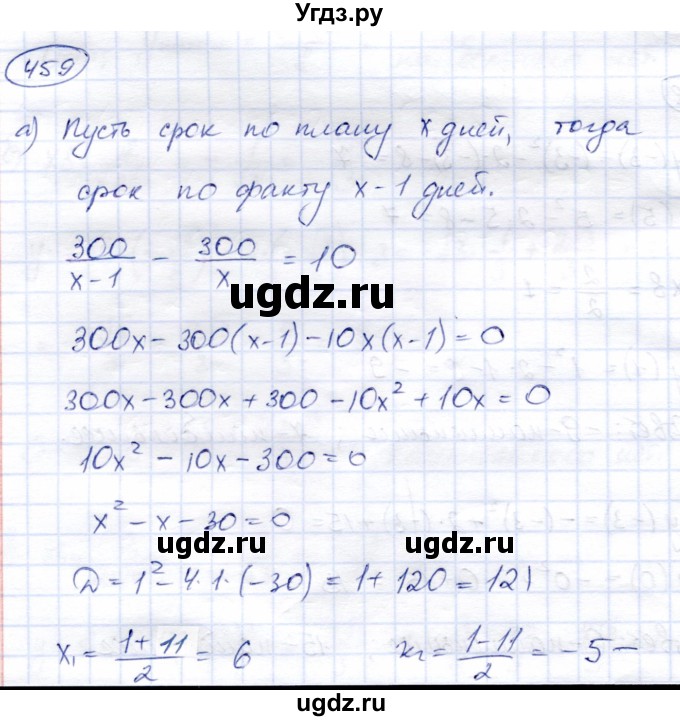 Угдз.ру
459
а) Пусть срок по плану x дней, тогда
срок по факту x-1 дней.
300/(x-1) - 300/x = 10
ugdz.ru
300x - 300(x-1) - 10x(x-1) = 0
300x - 300x + 300 - 10x² + 10x = 0
10x² - 10x - 300 = 0
x² - x - 30 = 0
ugdz.ru ugdz.ru
D = 1² - 4·1·(-30) = 1 + 120 = 121
x₁ = (1+11)/2 = 6 x₂ = (1-11)/2 = -5 -
ugdz.ru